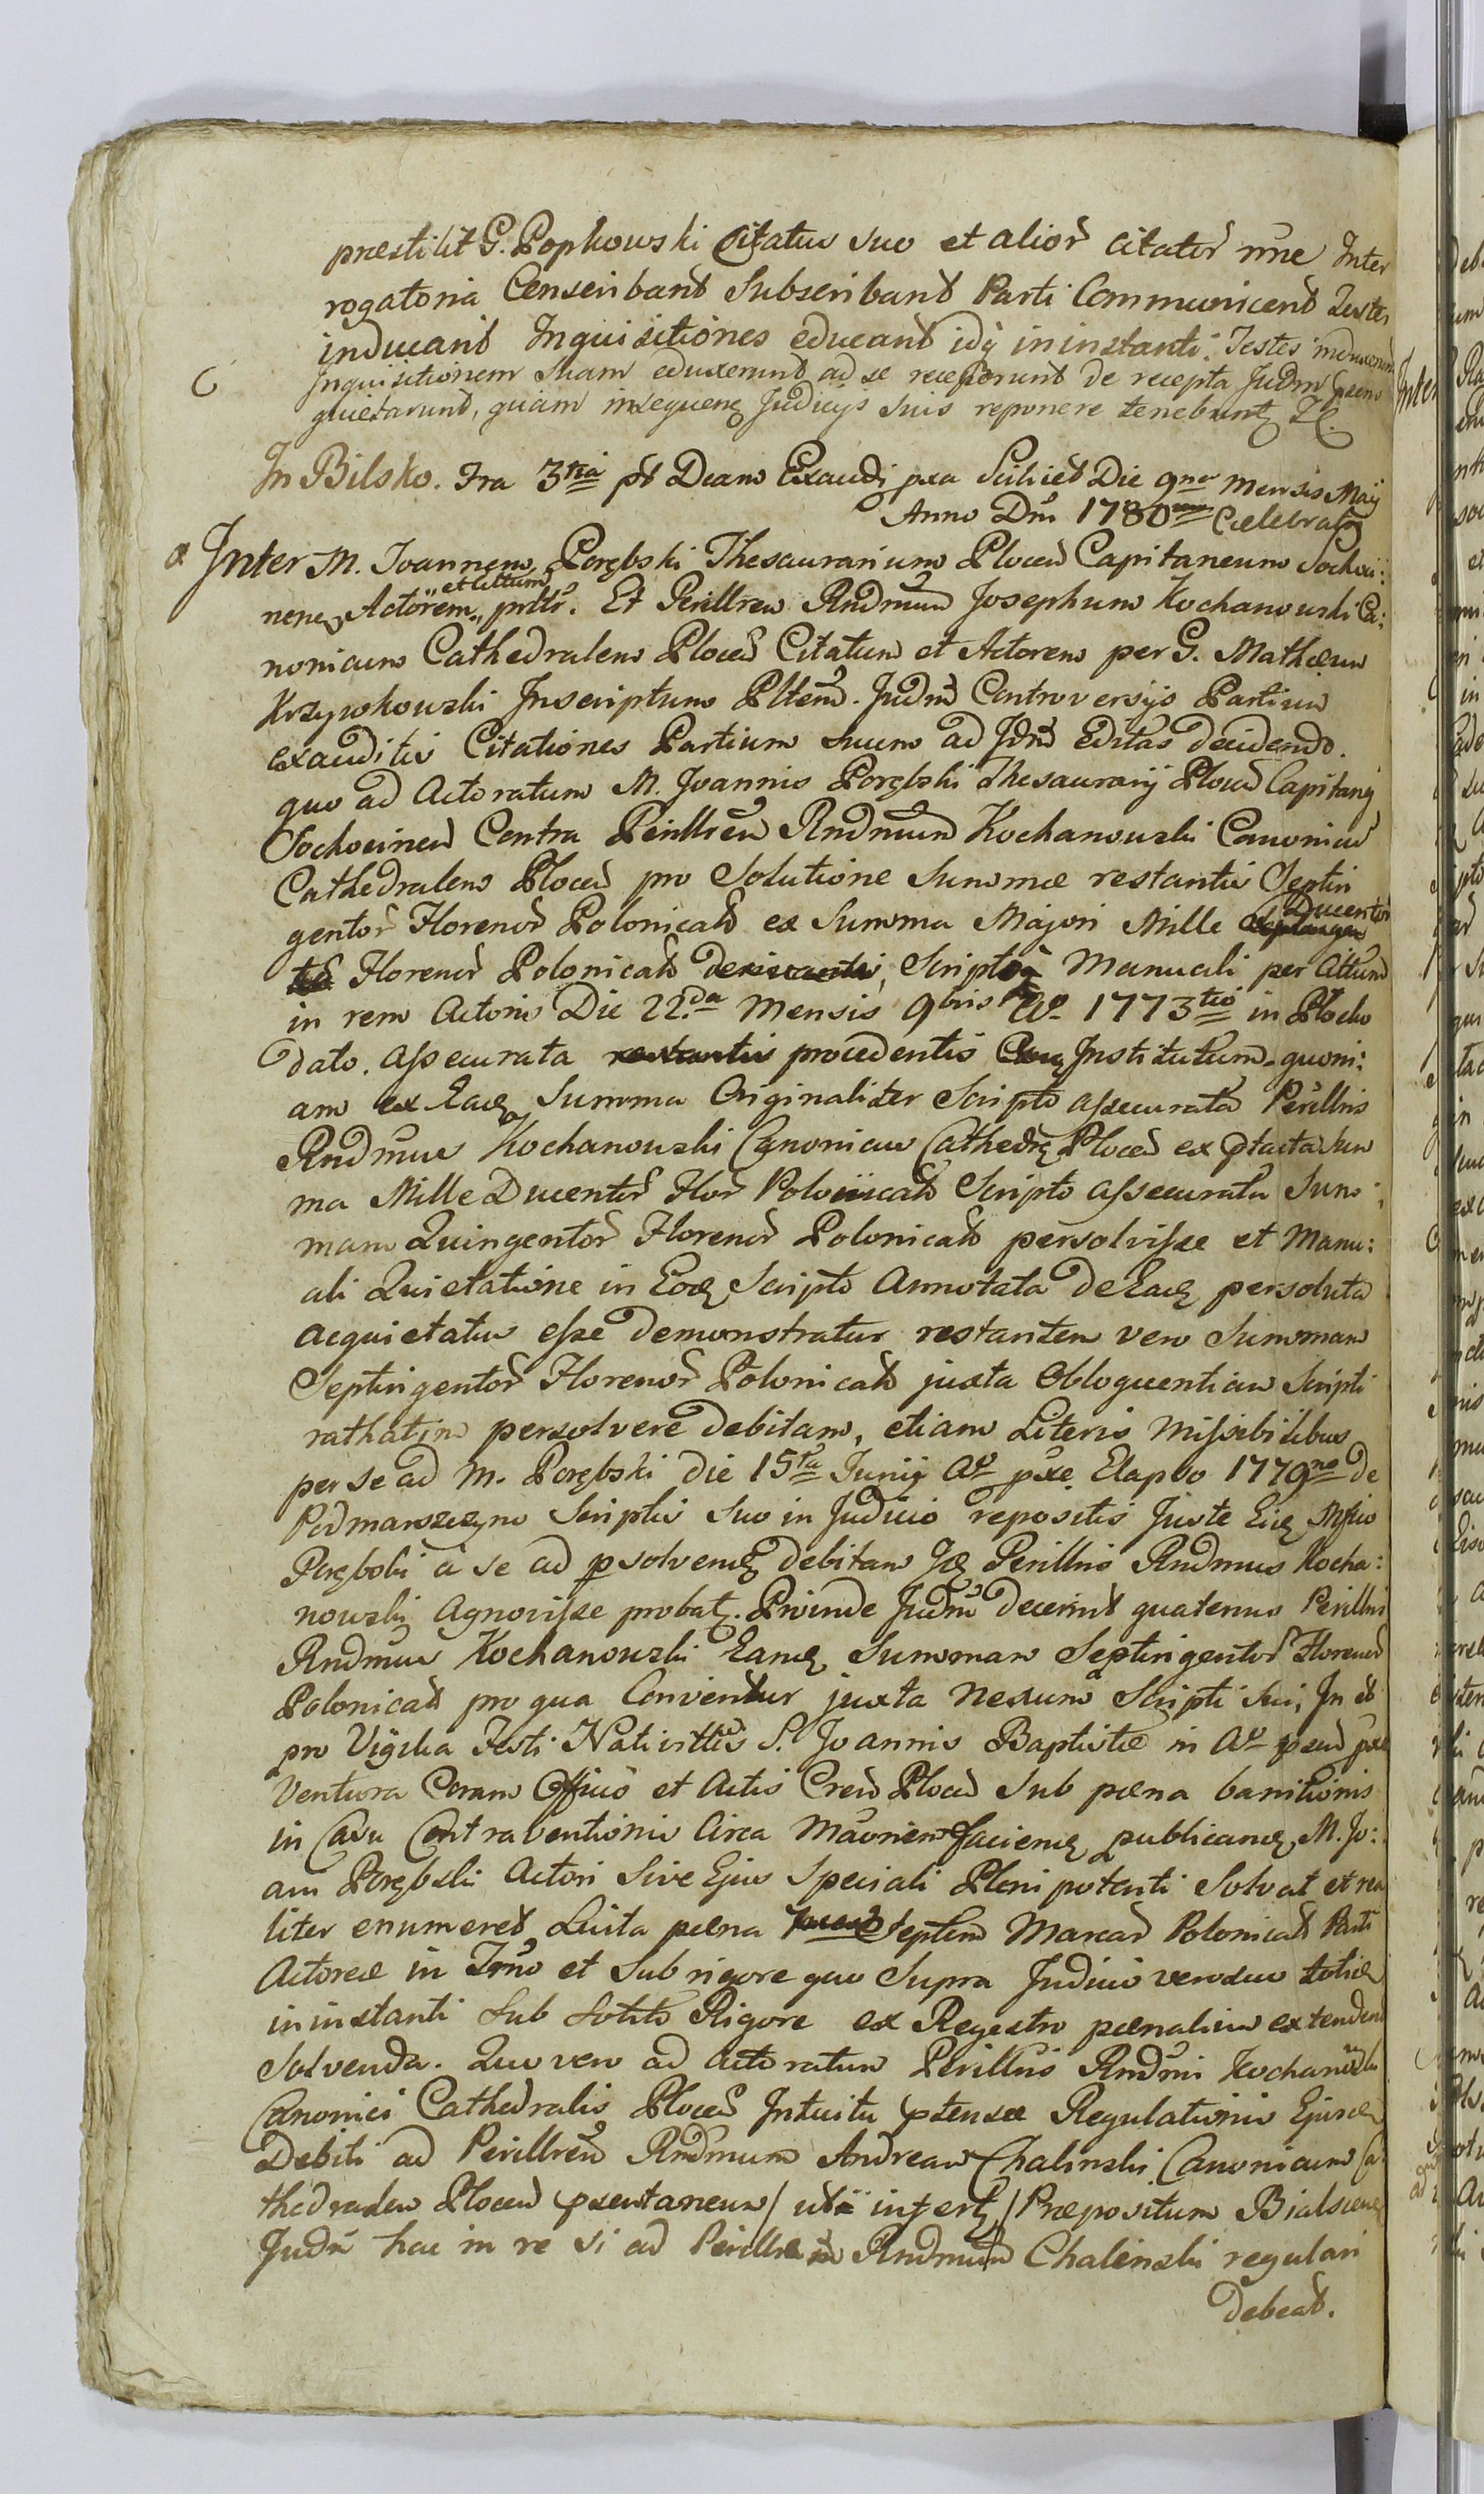 præstitit G. Popkowski Citatus suo et alior citator nne Inter
rogatoria Conseribant Subscribant Parti Communicent Testes
inducant Inquisitiones educant idq in instanti. Testes induxerunt
Inquisitionem Suam eduxerunt ad se receperunt de recepta Judm
quietarunt, quam in sequen Judicijs suis reponere tenebunt
In Bilsko. Fra 3tia pt Dcam Exaudi pxa Scilicet Die 9na Mensis Maij
Anno Dni 1780mo Cælebratis
Inter M. Joannem Porębski Thesaurarium Plocen Capitaneum Sochoci:
nen Actorem et Cittum prtts. Et Perillrem Rndmum Josephum Kochanowski Ca:
nonicum Cathedralem Plocen Citatum et Actorem per G. Mathæum
Krzywkowski Inscriptum Pltem. Judm Controversijs Partium
exauditis Citationes Partium suum ad Jdm editas decidendo.
quo ad Actoratum M. Joannis Porębski Thesaurarij Plocen Capitanei
Sochocinen Contra Perillrem Rndmum Kochanowski Canonicum
Cathedralem Plocen pro Solutione Summæ restantis Septin
gentor Florenor Polonical ex Summa Majori Mille Ducentor
Florenor Polonical Scripto Manuali per Cittum
in rem Actoris Die 22da Mensis 9bris Ao 1773tio in Plocko
dato. assecurata procedentis Institutum. quoni:
am ex Ead Summa Originaliter Scripto assecurata Perillris
Rndmus Kochanowski Canonicus Cathedr Plocen ex ptacta Sum
ma Mille Ducentor Flor Polonical Scripto assecurata Sum:
mam Quingentor Florenor Polonical persolvisse et Manu:
ali Quietatione in Eod Scripto Annotata de Ead persoluta
acquietatus esse demonstratur restantem vero Summam
Septingentor Florenor Polonical juxta Obloquentiam Scripti
rathatim persolvere debitam, etiam Literis Missibilibus
per se ad M. Porębski die 15ta Junij Ao pxe Elapso 1779no de
Podmarszczyno Scriptis suo in Judicio repositis Juste Eid Mfico
Porębski à se ad psolvend debitam Jd Perillris Rndmus Kocha:
nowski agnovisse probat. Proinde Judm decernit quatenus Perillris
Rndmus Kochanowski Eand Summam Septingentor Florenor
Polonical pro qua Convenitur juxta Nexum Scripti sui, In et
pro Vigilia Festi Nativittis S. Joannis Baptistæ in Ao psen pxe
Ventura Coram Officio et Actis Cren Plocen sub pæna banitionis
in Casu Contraventionis circa Maonem faciend publicand, M. Jo:
ani Porębski Actori sive Ejus Speciali Plenipotenti Solvat et rea
liter enumeret Luita pæna Septem Marcar Polonical Parti
Actoreæ in Trno et sub rigore quo Supra Judicio vero suo totid
in instanti sub Sotito Rigore ex Regestro pænalium extenden
Solvenda. Quo vero ad actoratum Perillris Rndmi Kochanowski
Canonici Cathedralis Plocen Intuitu ptensæ Regulationis Ejusd
Debiti ad Perillrem Rndmum Andream Chalinski Canonicum Ca
thedralem Plocen psentaneum / uti infert / Præpositum Bialscen
Judm hac in re si ad Perillrem Rndmum Chalinski regulari
debeat.